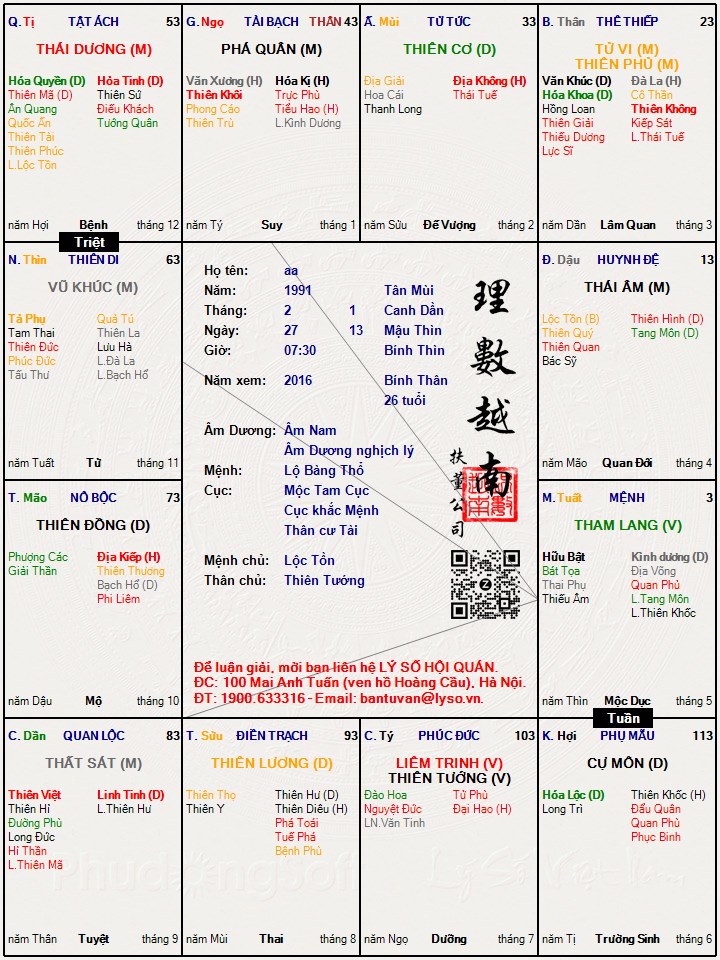 Q. Tị TẬT ÁCH 53
THÁI DƯƠNG (M)
Hóa Quyền (Đ) Hỏa Tinh (Đ)
Thiên Mã (Đ) Thiên Sứ
Ân Quang Điếu Khách
Quốc Ấn Tướng Quân
Thiên Tài
Thiên Phúc
L.Lộc Tồn
năm Hợi Bệnh tháng 12
G. Ngọ TÀI BẠCH THÂN 43
PHÁ QUÂN (M)
Văn Xương (H) Hóa Kị (H)
Thiên Khôi Trực Phù
Phong Cáo Tiểu Hao (H)
Thiên Trù L.Kình Dương
năm Tý Suy tháng 1
Ấ. Mùi TỬ TỨC 33
THIÊN CƠ (Đ)
Địa Giải Địa Không (H)
Hoa Cái Thái Tuế
Thanh Long
năm Sửu Đế Vượng tháng 2
B. Thân THÊ THIẾP 23
TỬ VI (M)
THIÊN PHỦ (M)
Văn Khúc (Đ) Đà La (H)
Hóa Khoa (Đ) Cô Thần
Hồng Loan Thiên Không
Thiên Giải Kiếp Sát
Thiếu Dương L.Thái Tuế
Lực Sĩ
năm Dần Lâm Quan tháng 3
Triệt
N. Thìn THIÊN DI 63
VŨ KHÚC (M)
Tả Phụ Quả Tú
Tam Thai Thiên La
Thiên Đức Lưu Hà
Phúc Đức L.Đà La
Tấu Thư L.Bạch Hổ
năm Tuất Tử tháng 11
Họ tên: aa
Năm: 1991 Tân Mùi
Tháng: 2 1 Canh Dần
Ngày: 27 13 Mậu Thìn
Giờ: 07:30 Bính Thìn
Năm xem: 2016 Bính Thân
26 tuổi
Âm Dương: Âm Nam
Âm Dương nghịch lý
Mệnh: Lộ Bàng Thổ
Cục: Mộc Tam Cục
Cục khắc Mệnh
Thân cư Tài
Mệnh chủ: Lộc Tồn
Thân chủ: Thiên Tướng
理數越南
扶董公司
Để luận giải, mời bạn liên hệ LÝ SỐ HỘI QUÁN.
ĐC: 100 Mai Anh Tuấn (ven hồ Hoàng Cầu), Hà Nội.
ĐT: 1900.633316 - Email: bantuvan@lyso.vn.
Đ. Dậu HUYNH ĐỆ 13
THÁI ÂM (M)
Lộc Tồn (B) Thiên Hình (Đ)
Thiên Quý Tang Môn (Đ)
Thiên Quan
Bác Sỹ
năm Mão Quan Đới tháng 4
T. Mão NÔ BỘC 73
THIÊN ĐỒNG (Đ)
Phượng Các Địa Kiếp (H)
Giải Thần Thiên Thương
Bạch Hổ (Đ)
Phi Liêm
năm Dậu Mộ tháng 10
M. Tuất MỆNH 3
THAM LANG (V)
Hữu Bật Kình dương (Đ)
Bát Tọa Địa Võng
Thai Phụ Quan Phủ
Thiếu Âm L.Tang Môn
L.Thiên Khốc
năm Thìn Mộc Dục tháng 5
Tuần
C. Dần QUAN LỘC 83
THẤT SÁT (M)
Thiên Việt Linh Tinh (Đ)
Thiên Hỉ L.Thiên Hư
Đường Phù
Long Đức
Hỉ Thần
L.Thiên Mã
năm Thân Tuyệt tháng 9
T. Sửu ĐIỀN TRẠCH 93
THIÊN LƯƠNG (Đ)
Thiên Thọ Thiên Hư (Đ)
Thiên Y Thiên Diêu (H)
Phá Toái
Tuế Phá
Bệnh Phù
năm Mùi Thai tháng 8
C. Tý PHÚC ĐỨC 103
LIÊM TRINH (V)
THIÊN TƯỚNG (V)
Đào Hoa Tử Phù
Nguyệt Đức Đại Hao (H)
LN.Văn Tinh
năm Ngọ Dưỡng tháng 7
K. Hợi PHỤ MẪU 113
CỰ MÔN (Đ)
Hóa Lộc (Đ) Thiên Khốc (H)
Long Trì Đẩu Quân
Quan Phù
Phục Binh
năm Tị Trường Sinh tháng 6